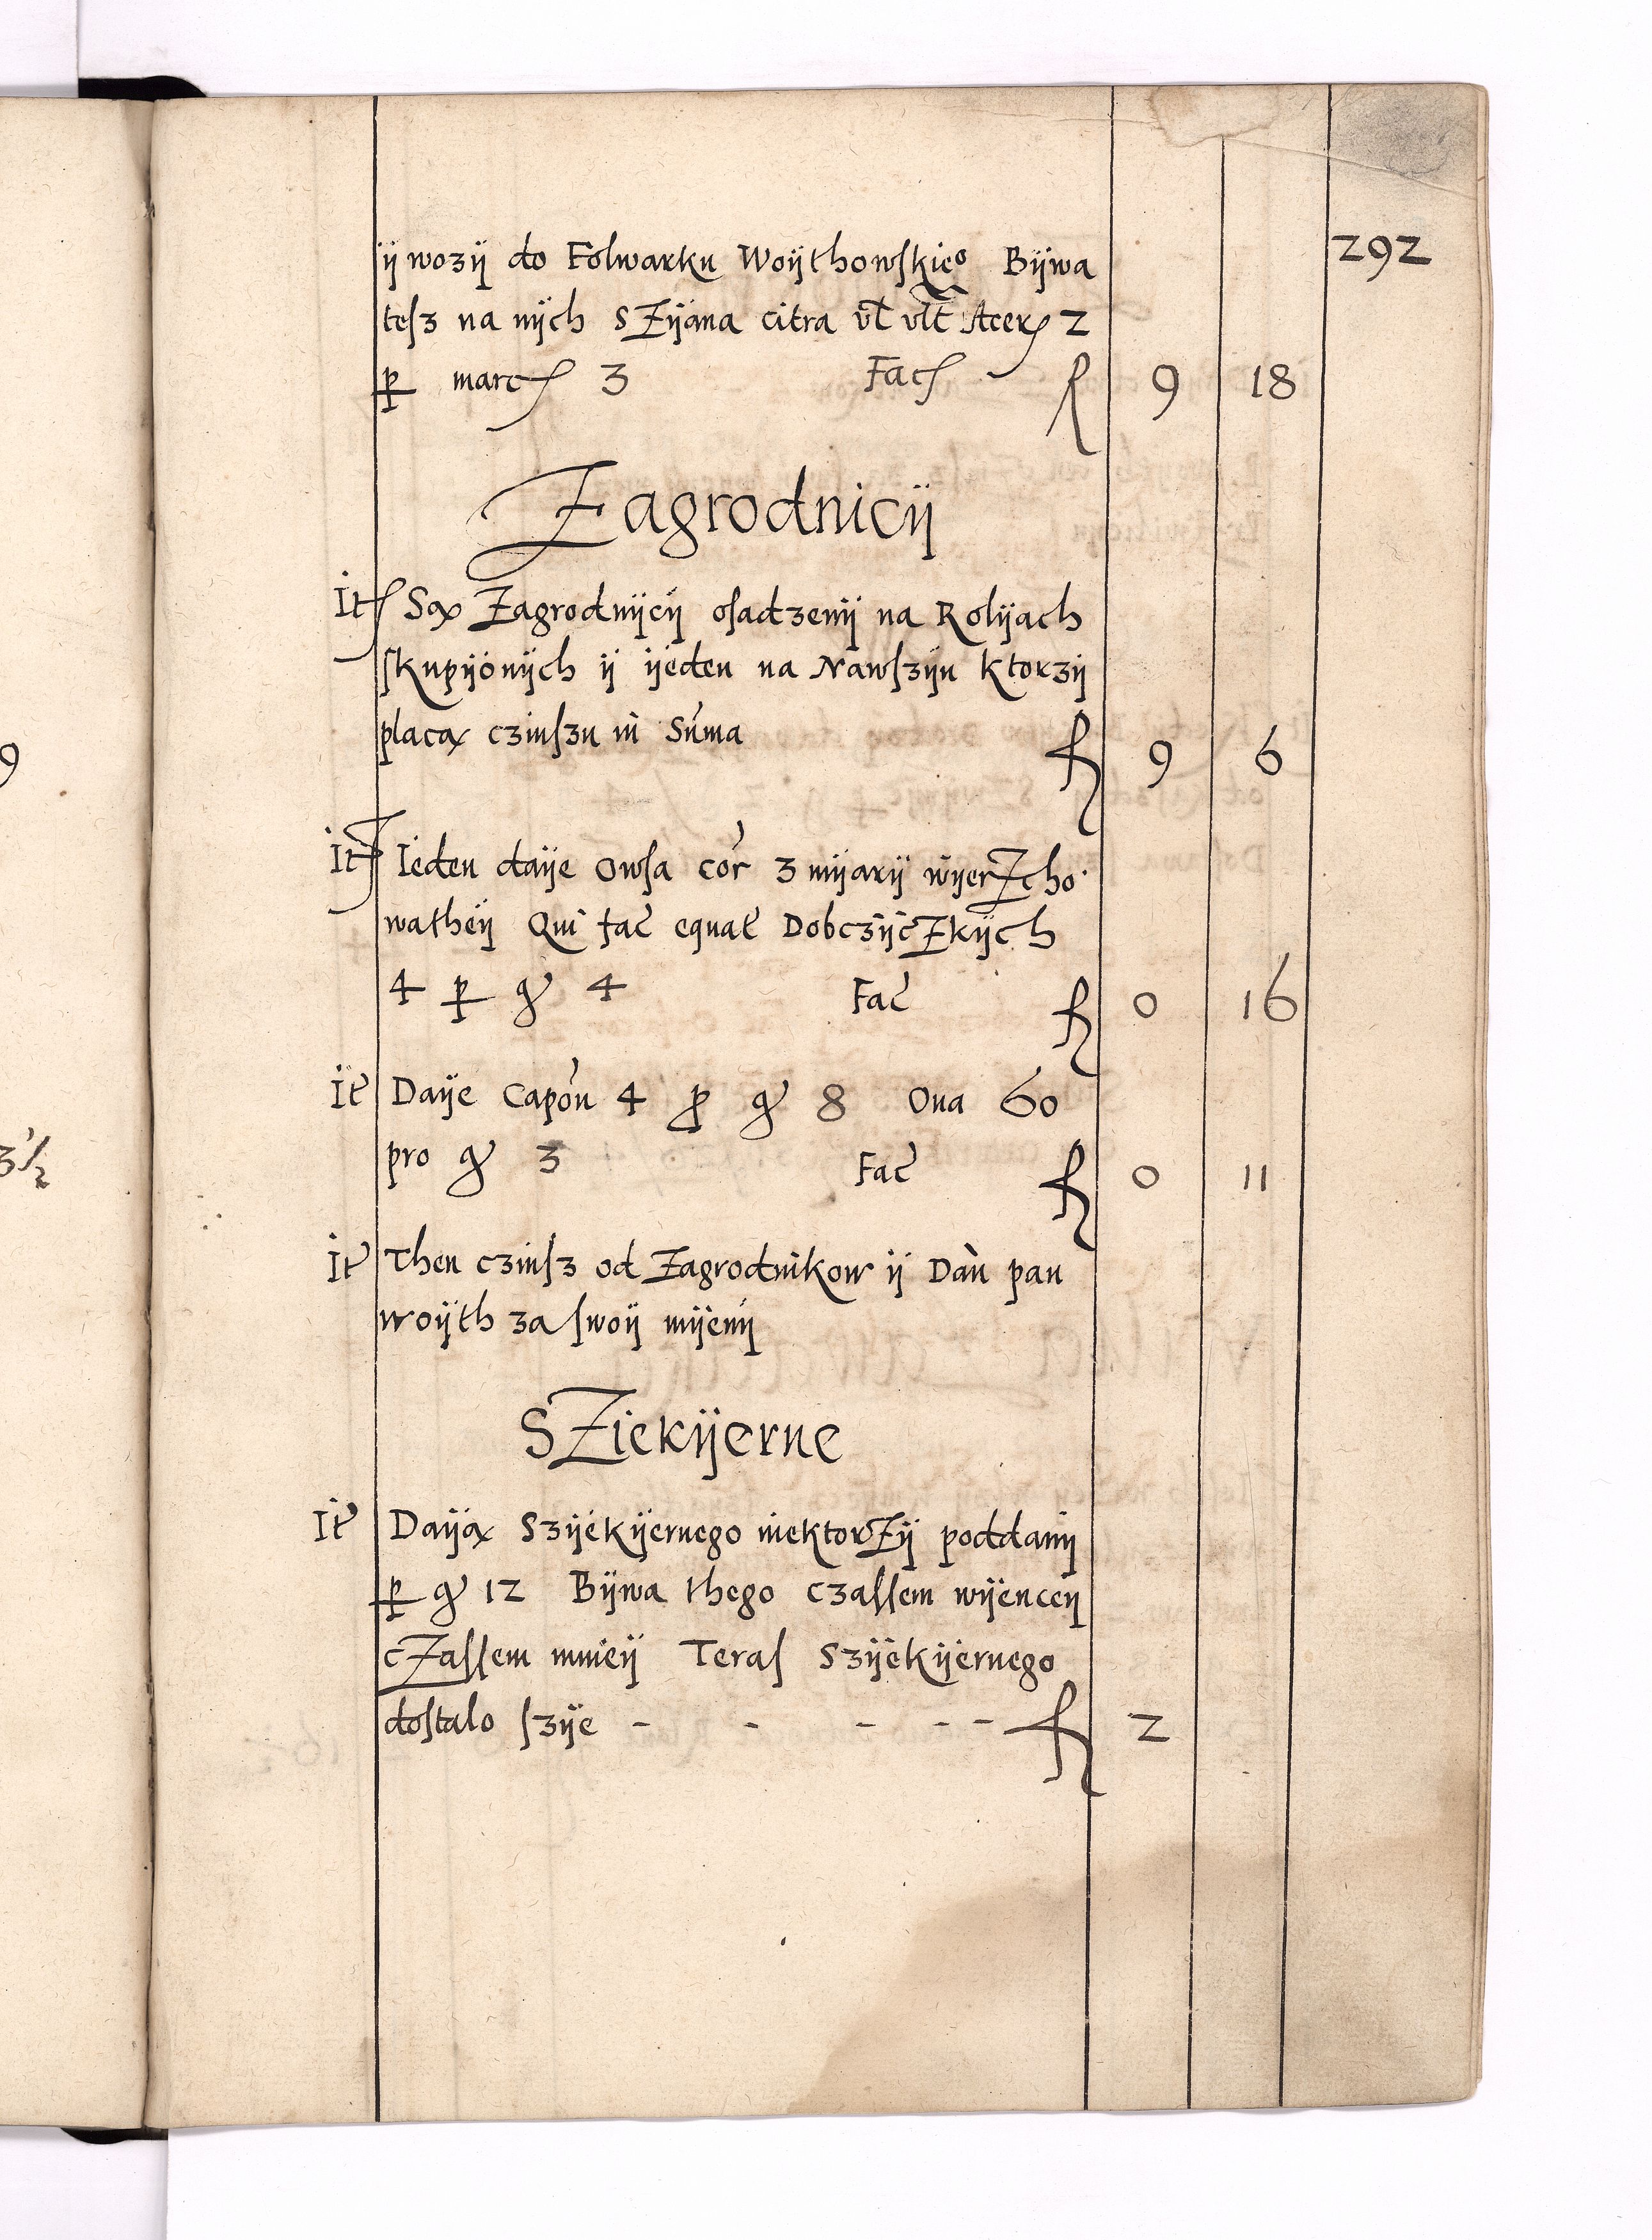 292
ÿ wozÿ do Folwarku Woÿthowskie⁰ Bÿwa
tesz na nÿch SZÿana citra vl vlt Acer 2
p marc 3 Fac f 9 18
Zagrodnicÿ
It Sąx Zagrodnÿcÿ osadzenÿ na Rolÿach
skupÿonÿch ÿ ÿeden na Nawszÿu ktorzÿ
placą czinszu in Suma f 9 6
It Jeden daÿe Owsa cor 3 mÿarÿ wÿerZcho
watheÿ Qui fac equat DobczÿcZkÿch
4 p g 4 Fac f 0 16
It Daÿe Capon 4 p g 8 Oua 60
pro g 3 Fac f 0 11
It Then czinsz od Zagrodnikow ÿ Dan pan
woÿth za swoÿ mÿenÿ
SZiekÿerne
It Daÿą Szÿekÿernego niektorZÿ poddanÿ
p g 12 Bÿwa thego czassem wÿenceÿ
cZassem mnieÿ Teras Szÿekÿernego
dostalo szÿe - - - - - f 2
9
3 1/2